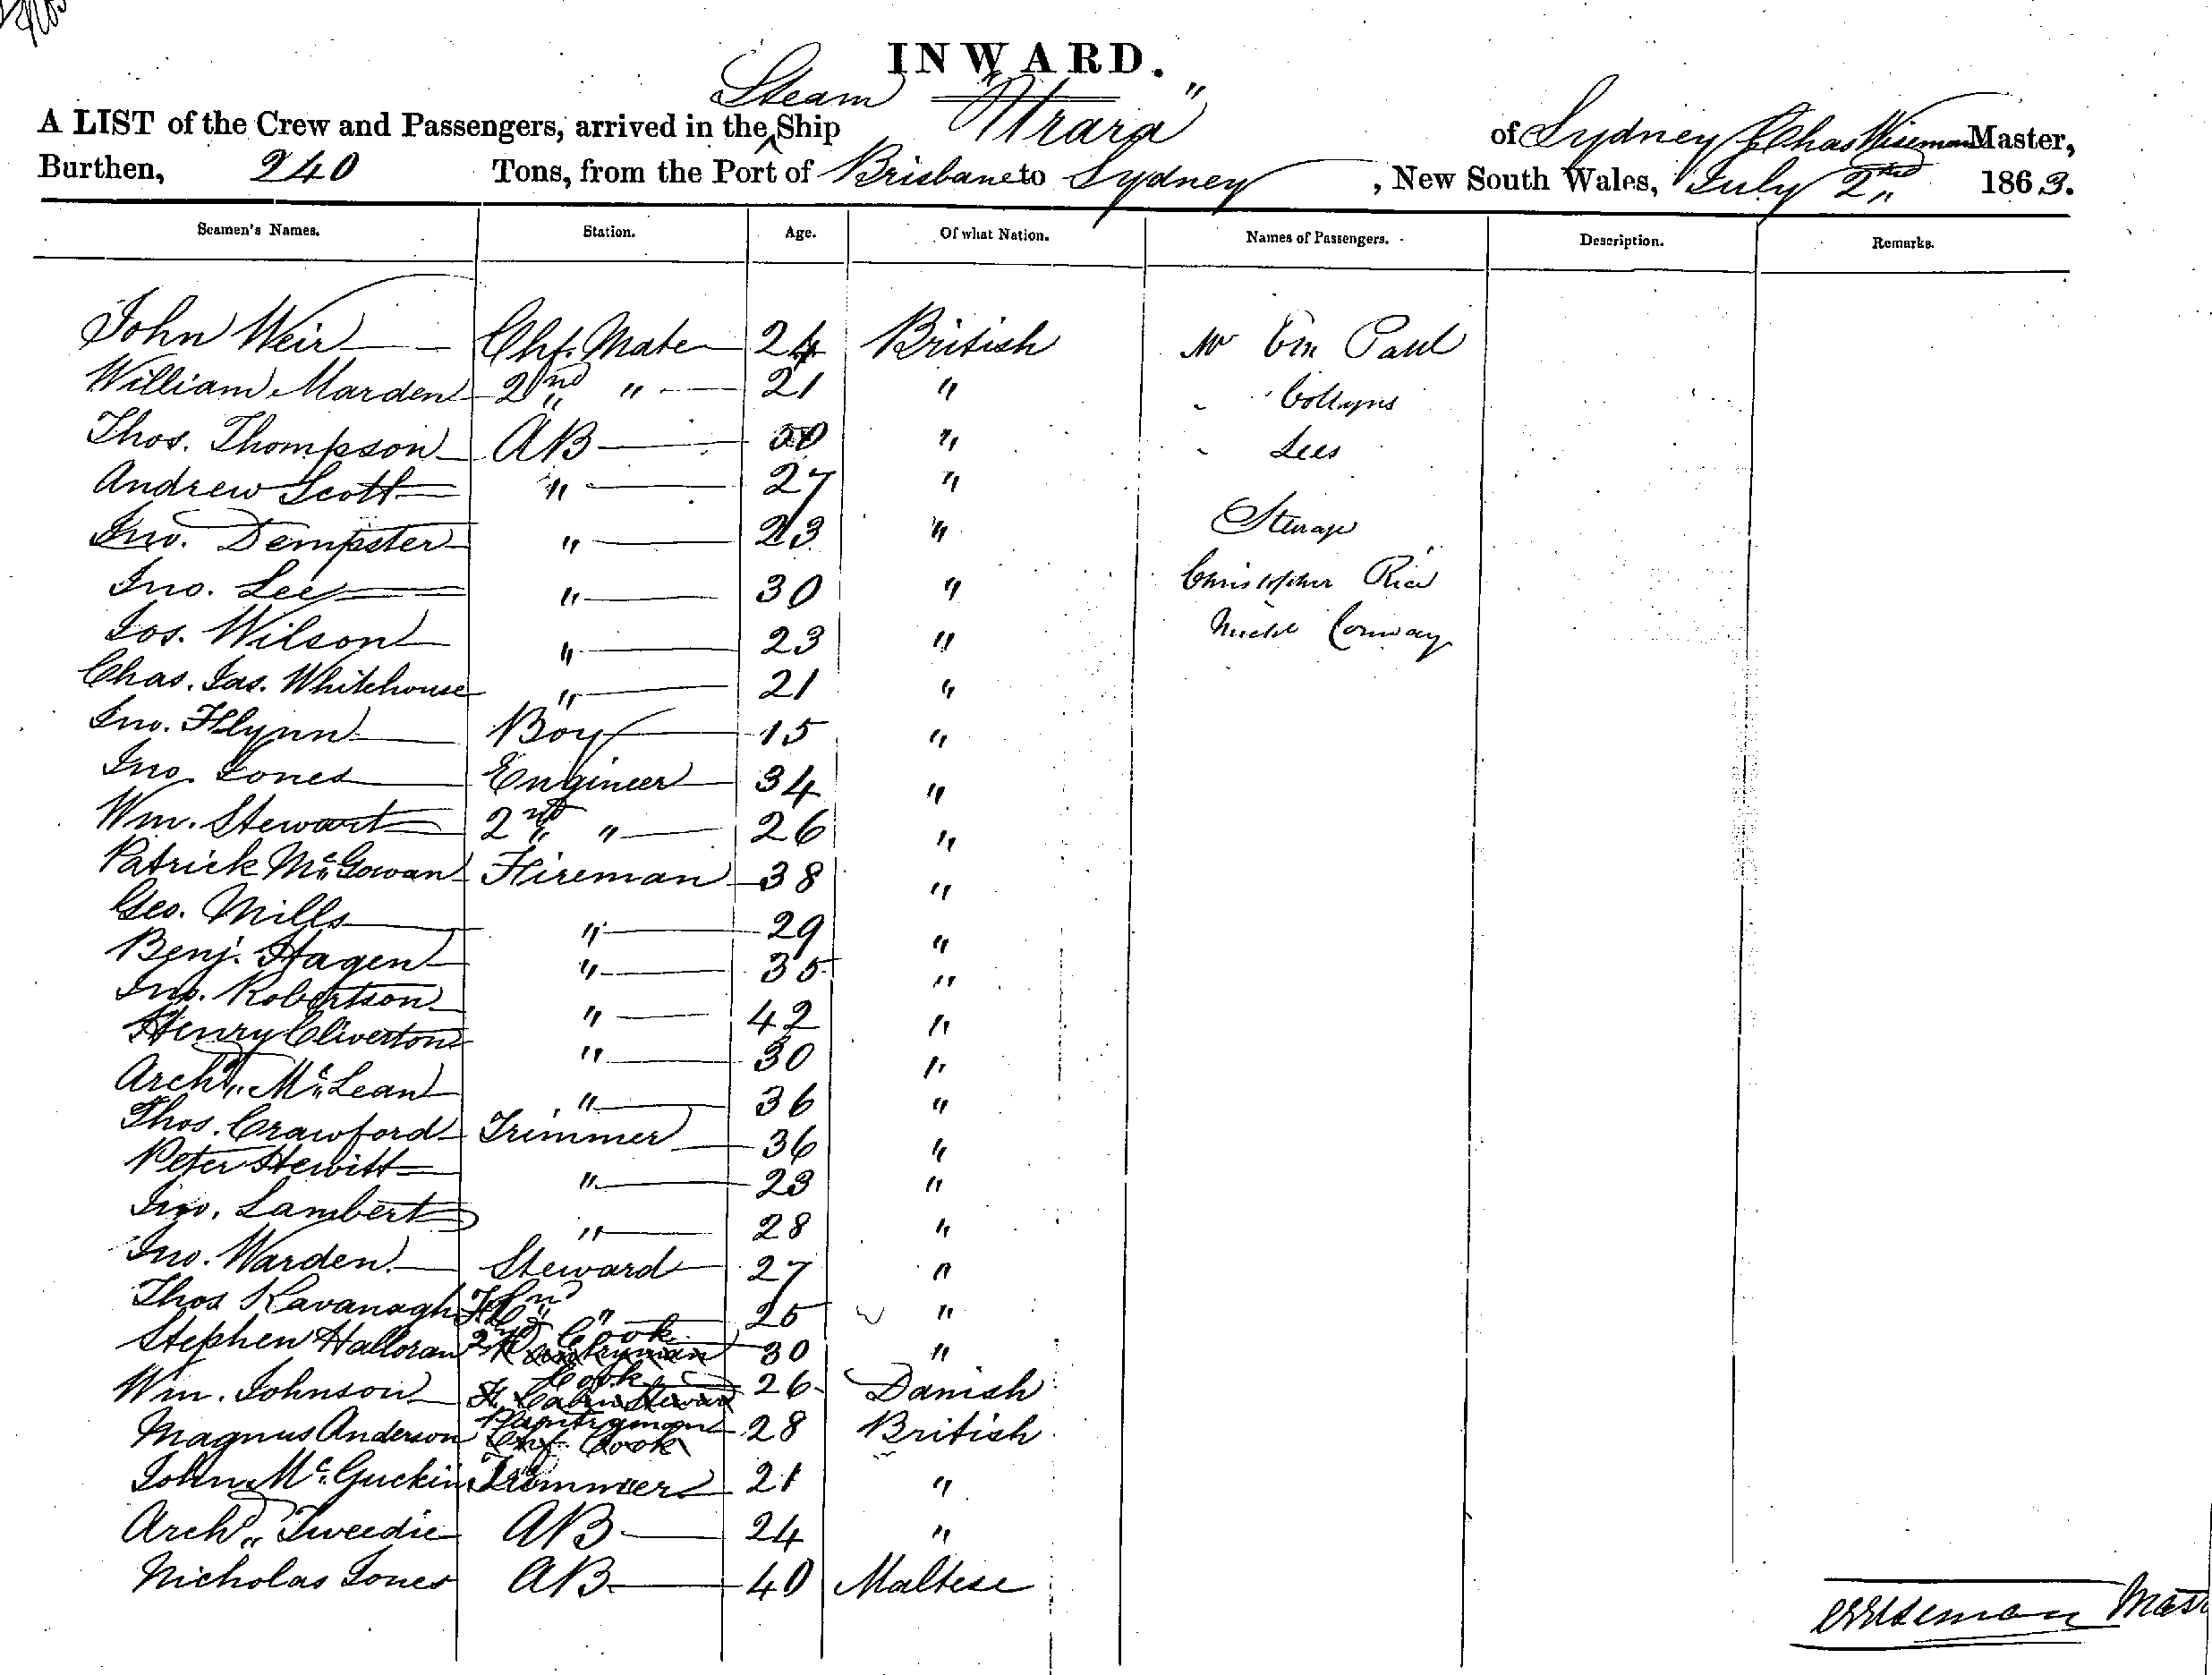 INWARD.
A LIST of the Crew and Passengers, arrived in the Steam Ship "Urara" of Sydney Chas Wiseman Master,
Burthen, 240 Tons, from the Port of Brisbane to Sydney, New South Wales, July 2nd 1863.
Seamen's Names. Station. Age. Of what Nation. Names of Passengers. Description. Remarks.
John Weir Chf. Mate 24 British Mr Paul
William Marden 2nd " 21 " Collyns
Thos. Thompson AB 50 " Lees
Andrew Scott " 27 "
Jno. Dempster " 23 " Steerage
Jno. Lee " 30 " Christopher Rice
Jos. Wilson " 23 " Michl Conway
Chas. Jas. Whitehouse " 21 "
Jno. Flynn Boy 15 "
Jno. Jones Engineer 34 "
Wm. Stewart 2nd " 26 "
Patrick McGowan Fireman 38 "
Geo. Mills " 29 "
Benj. Hagen " 35 "
Jno. Robertson " 42 "
Henry Cliverton " 30 "
Archd. McLean " 36 "
Thos. Crawford Trimmer 36 "
Peter Hewitt " 23 "
Jno. Lambert " 28 "
Jno. Warden Steward 27 "
Thos Kavanagh " 25 "
Stephen Halloran 2nd Cook Pantryman 30 "
Wm. Johnson Cook F. Cabin Steward 26 Danish
Magnus Anderson Pantryman Chf. Cook 28 British
John McGuckin Trimmer 21 "
Archd. Tweedie AB 24 "
Nicholas Jones AB 40 Maltese
CWiseman Mast